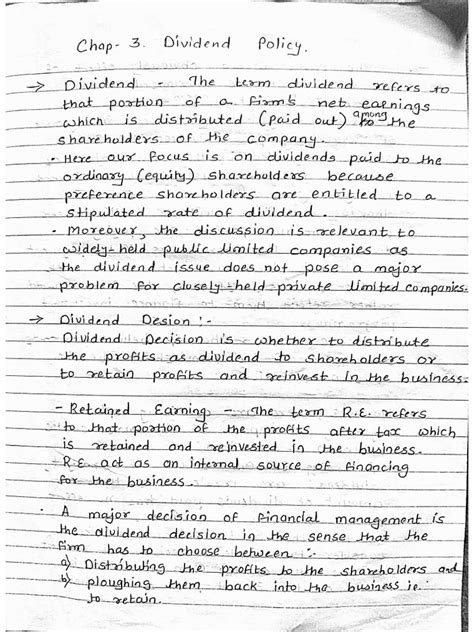 Chap- 3. Dividend Policy.
→ Dividend - The term dividend refers to
that portion of a firm's net earnings
which is distributed (paid out) among the
shareholders of the company.
· Here our focus is on dividends paid to the
ordinary (equity) shareholders because
preference shareholders are entitled to a
stipulated rate of dividend.
· Moreover, the discussion is relevant to
widely-held public limited companies as
the dividend issue does not pose a major
problem for closely-held private limited companies.
→ Dividend Desion :-
- Dividend Decision is whether to distribute
the profits as dividend to shareholders or
to retain profits and reinvest in the business.
- Retained Earning - The term R.E. refers
to that portion of the profits after tax which
is retained and reinvested in the business.
R.E. act as an internal source of financing
for the business.
· A major decision of financial management is
the dividend decision in the sense that the
firm has to choose between :-
a) Distributing the profits to the shareholders and
b) ploughing them back into the business ie.
to retain.